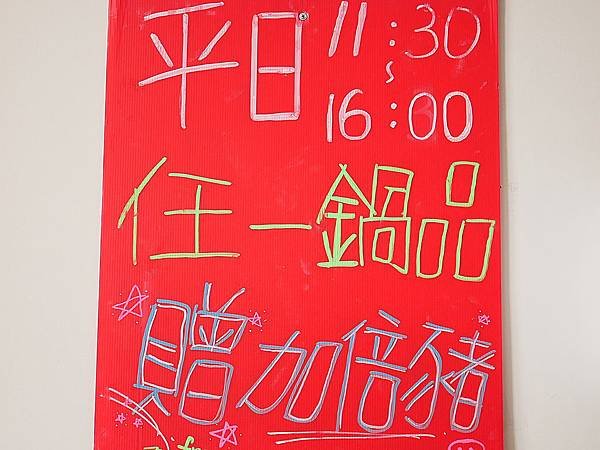 平日 11:30
~
16:00
任一鍋品
贈加倍豬